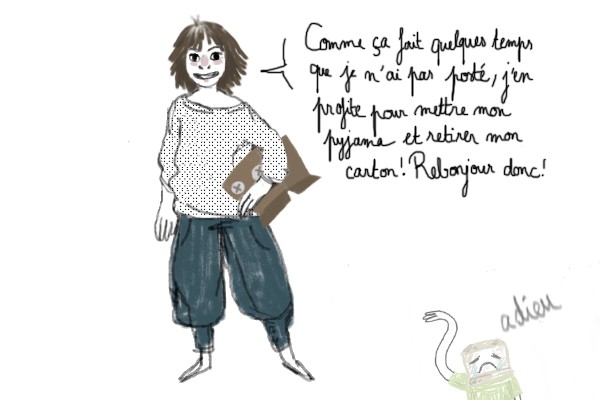 Comme ça fait quelques temps
que je n'ai pas posté, j'en
profite pour mettre mon
pyjama et retirer mon
carton! Rebonjour donc!
adieu